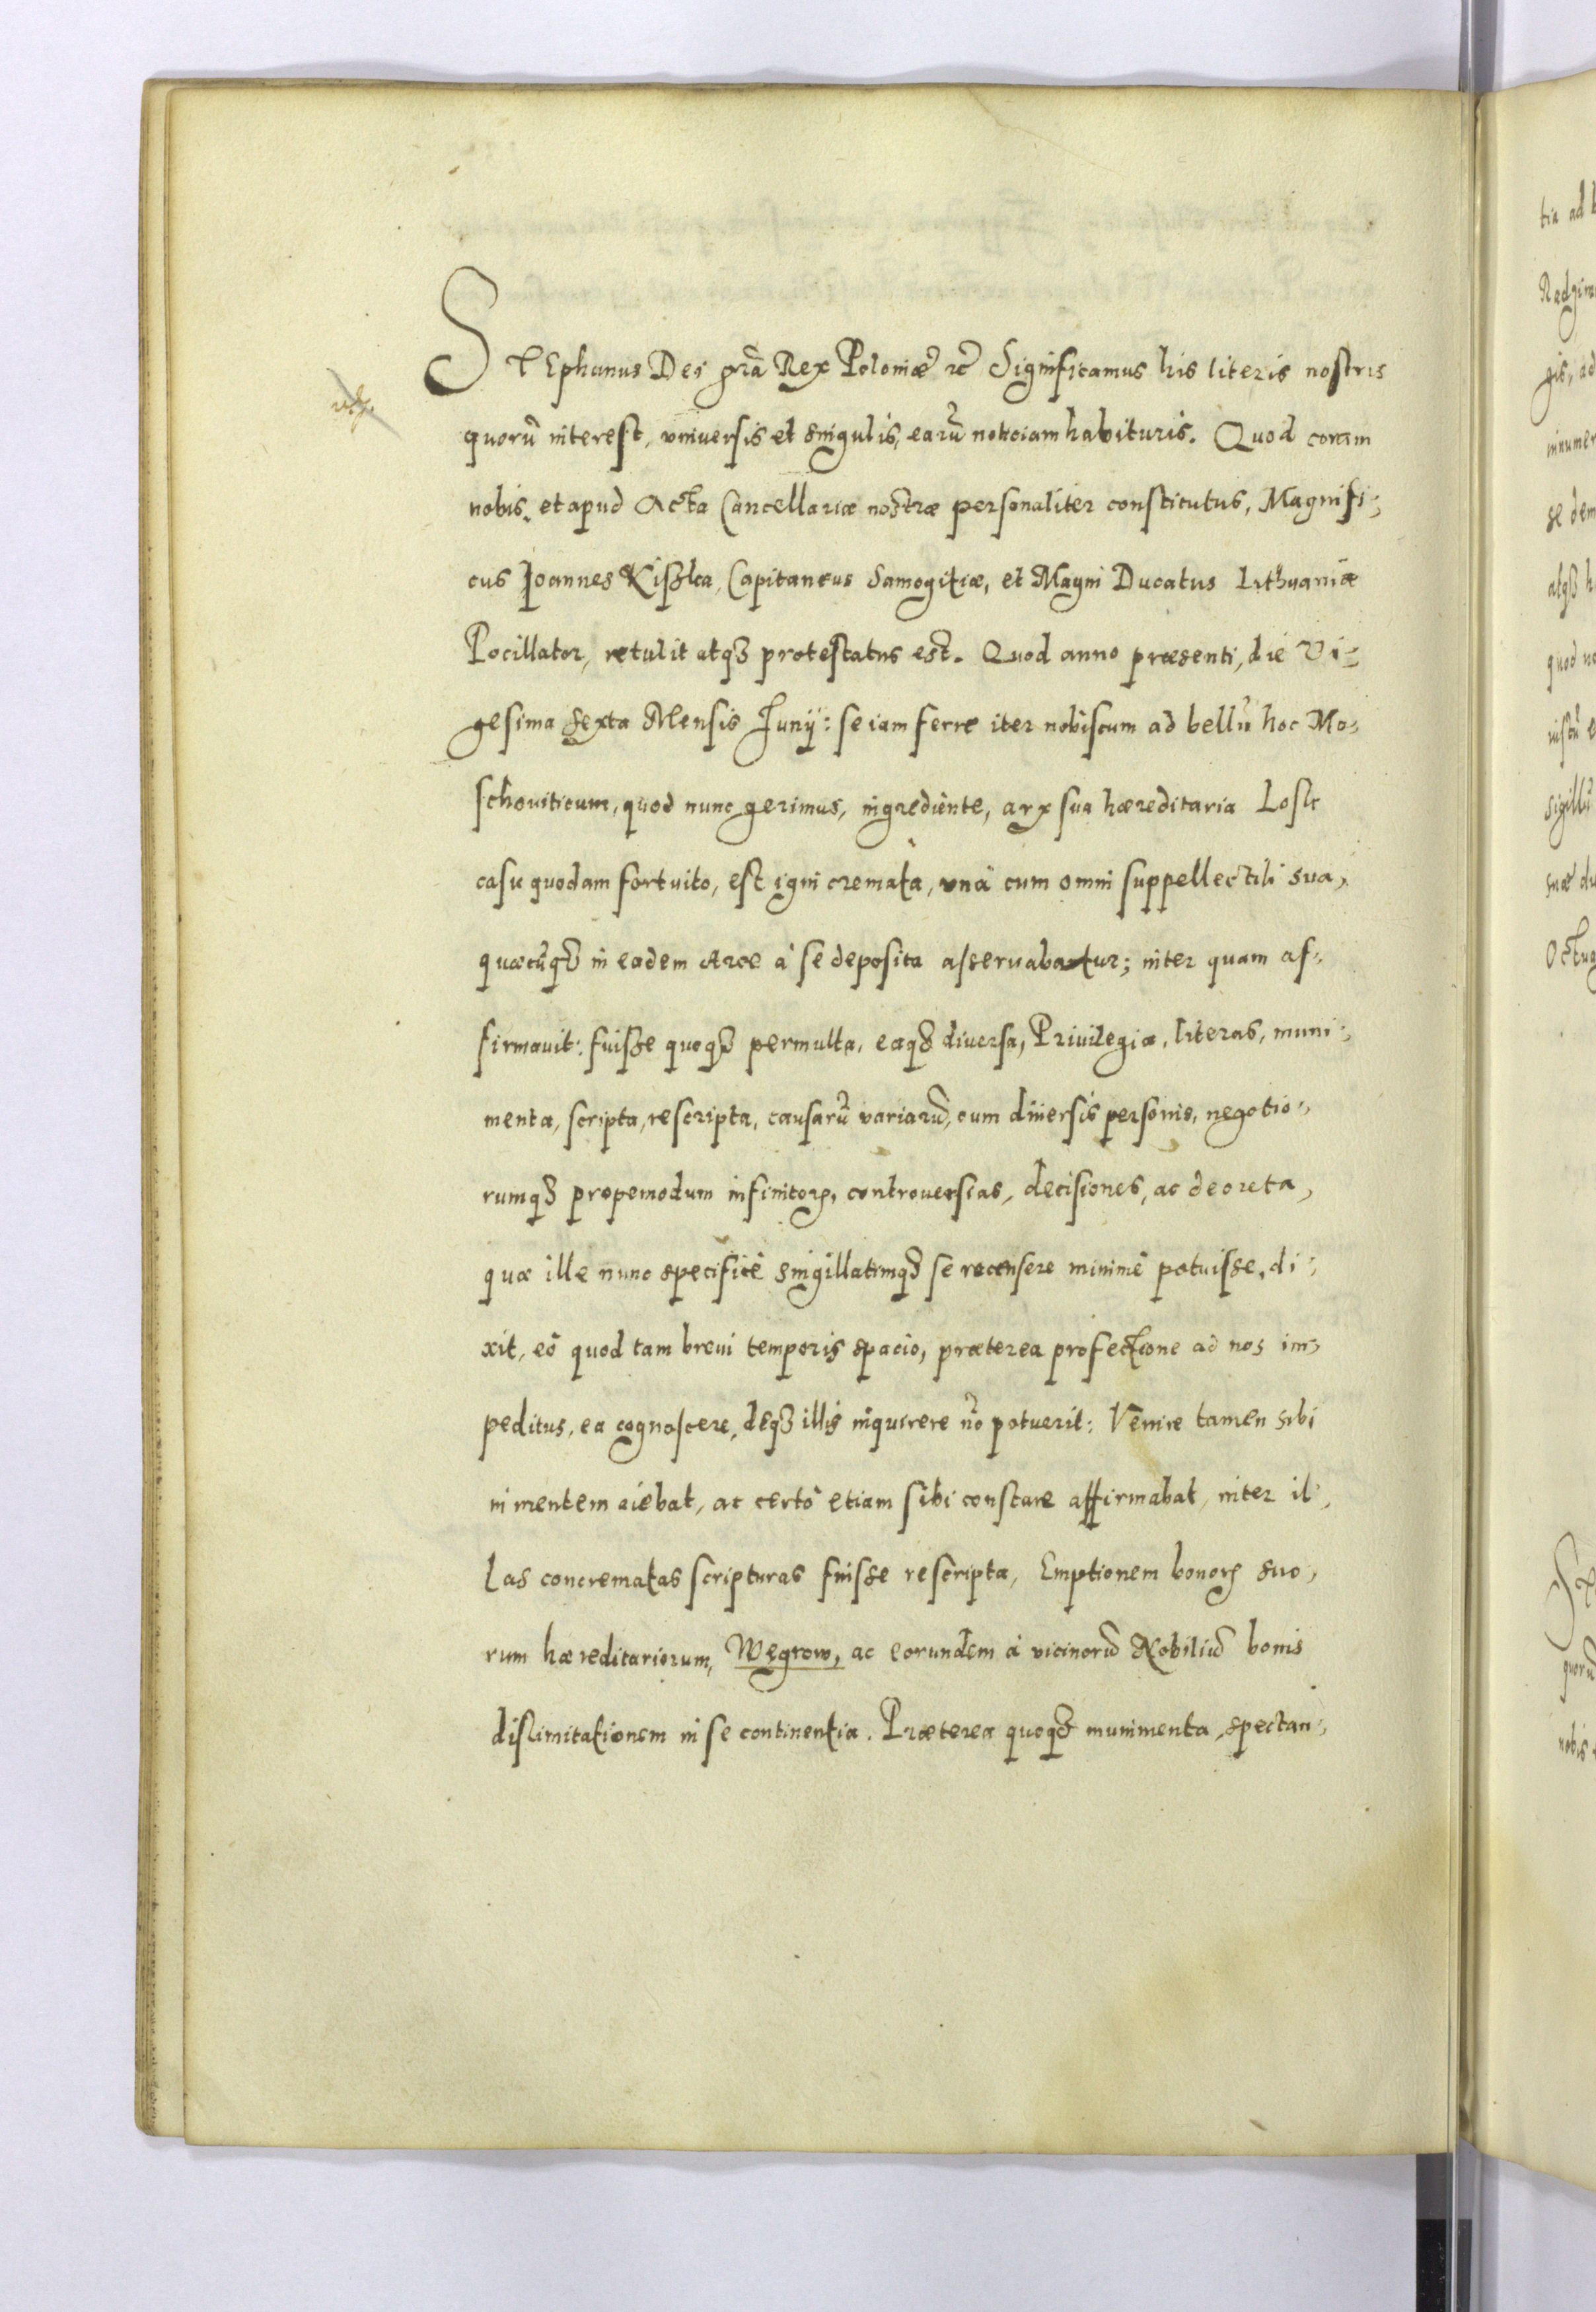 STEphanus Dei gra͂ Rex Poloniæ rc̃ Significamus his literis nostris
quorũ interest, vniversis et singulis, earũ noticiam habituris. Quod coram
nobis, et apud Acta Cancellariæ nostræ personaliter constitutus, Magnifi-
cus Joannes Kißka, Capitaneus Samogitiæ, et Magni Ducatus Lithuaniæ
Pocillator, retulit atqꝫ protestatus est. Quod anno præsenti, die Vi-
gesima sexta Mensis Junÿ: se iam ferre iter nobiscum ad bellũ hoc Mo-
schouiticum, quod nunc gerimus, ingrediente, arx sua hæreditaria Losk
casu quodam fortuito, est igni cremata, vnà cum omni suppellectili sua,
quæcũqꝫ in eadem Arce à se deposita asservabatur; inter quam af-
firmauit: fuisse quoqꝫ permulta, eaqꝫ diversa, Privilegia, literas, muni-
menta, scripta, rescripta, causarũ variarũ, cum diuersis personis, negotio-
rumqꝫ propemodum infinitorꝝ, controuersias, decisiones, ac decreta,
quæ ille nunc specificè singillatimqꝫ se recensere minimè potuisse, di-
xit, eò quod tam brevi temporis spacio, præterea profectione ad nos im-
peditus, ea cognoscere, deqꝫ illis inquirere nõ potuerit: Venire tamen sibi
in mentem aiebat, ac certò etiam sibi constare affirmabat, inter il-
las concrematas scripturas fuisse rescripta, Emptionem bonorꝝ suo-
rum hæreditariorum, Wegrow, ac eorundem à vicinorũ Nobiliũ bonis
dislimitationem in se continentia. Præterea quoqꝫ munimenta, spectan-